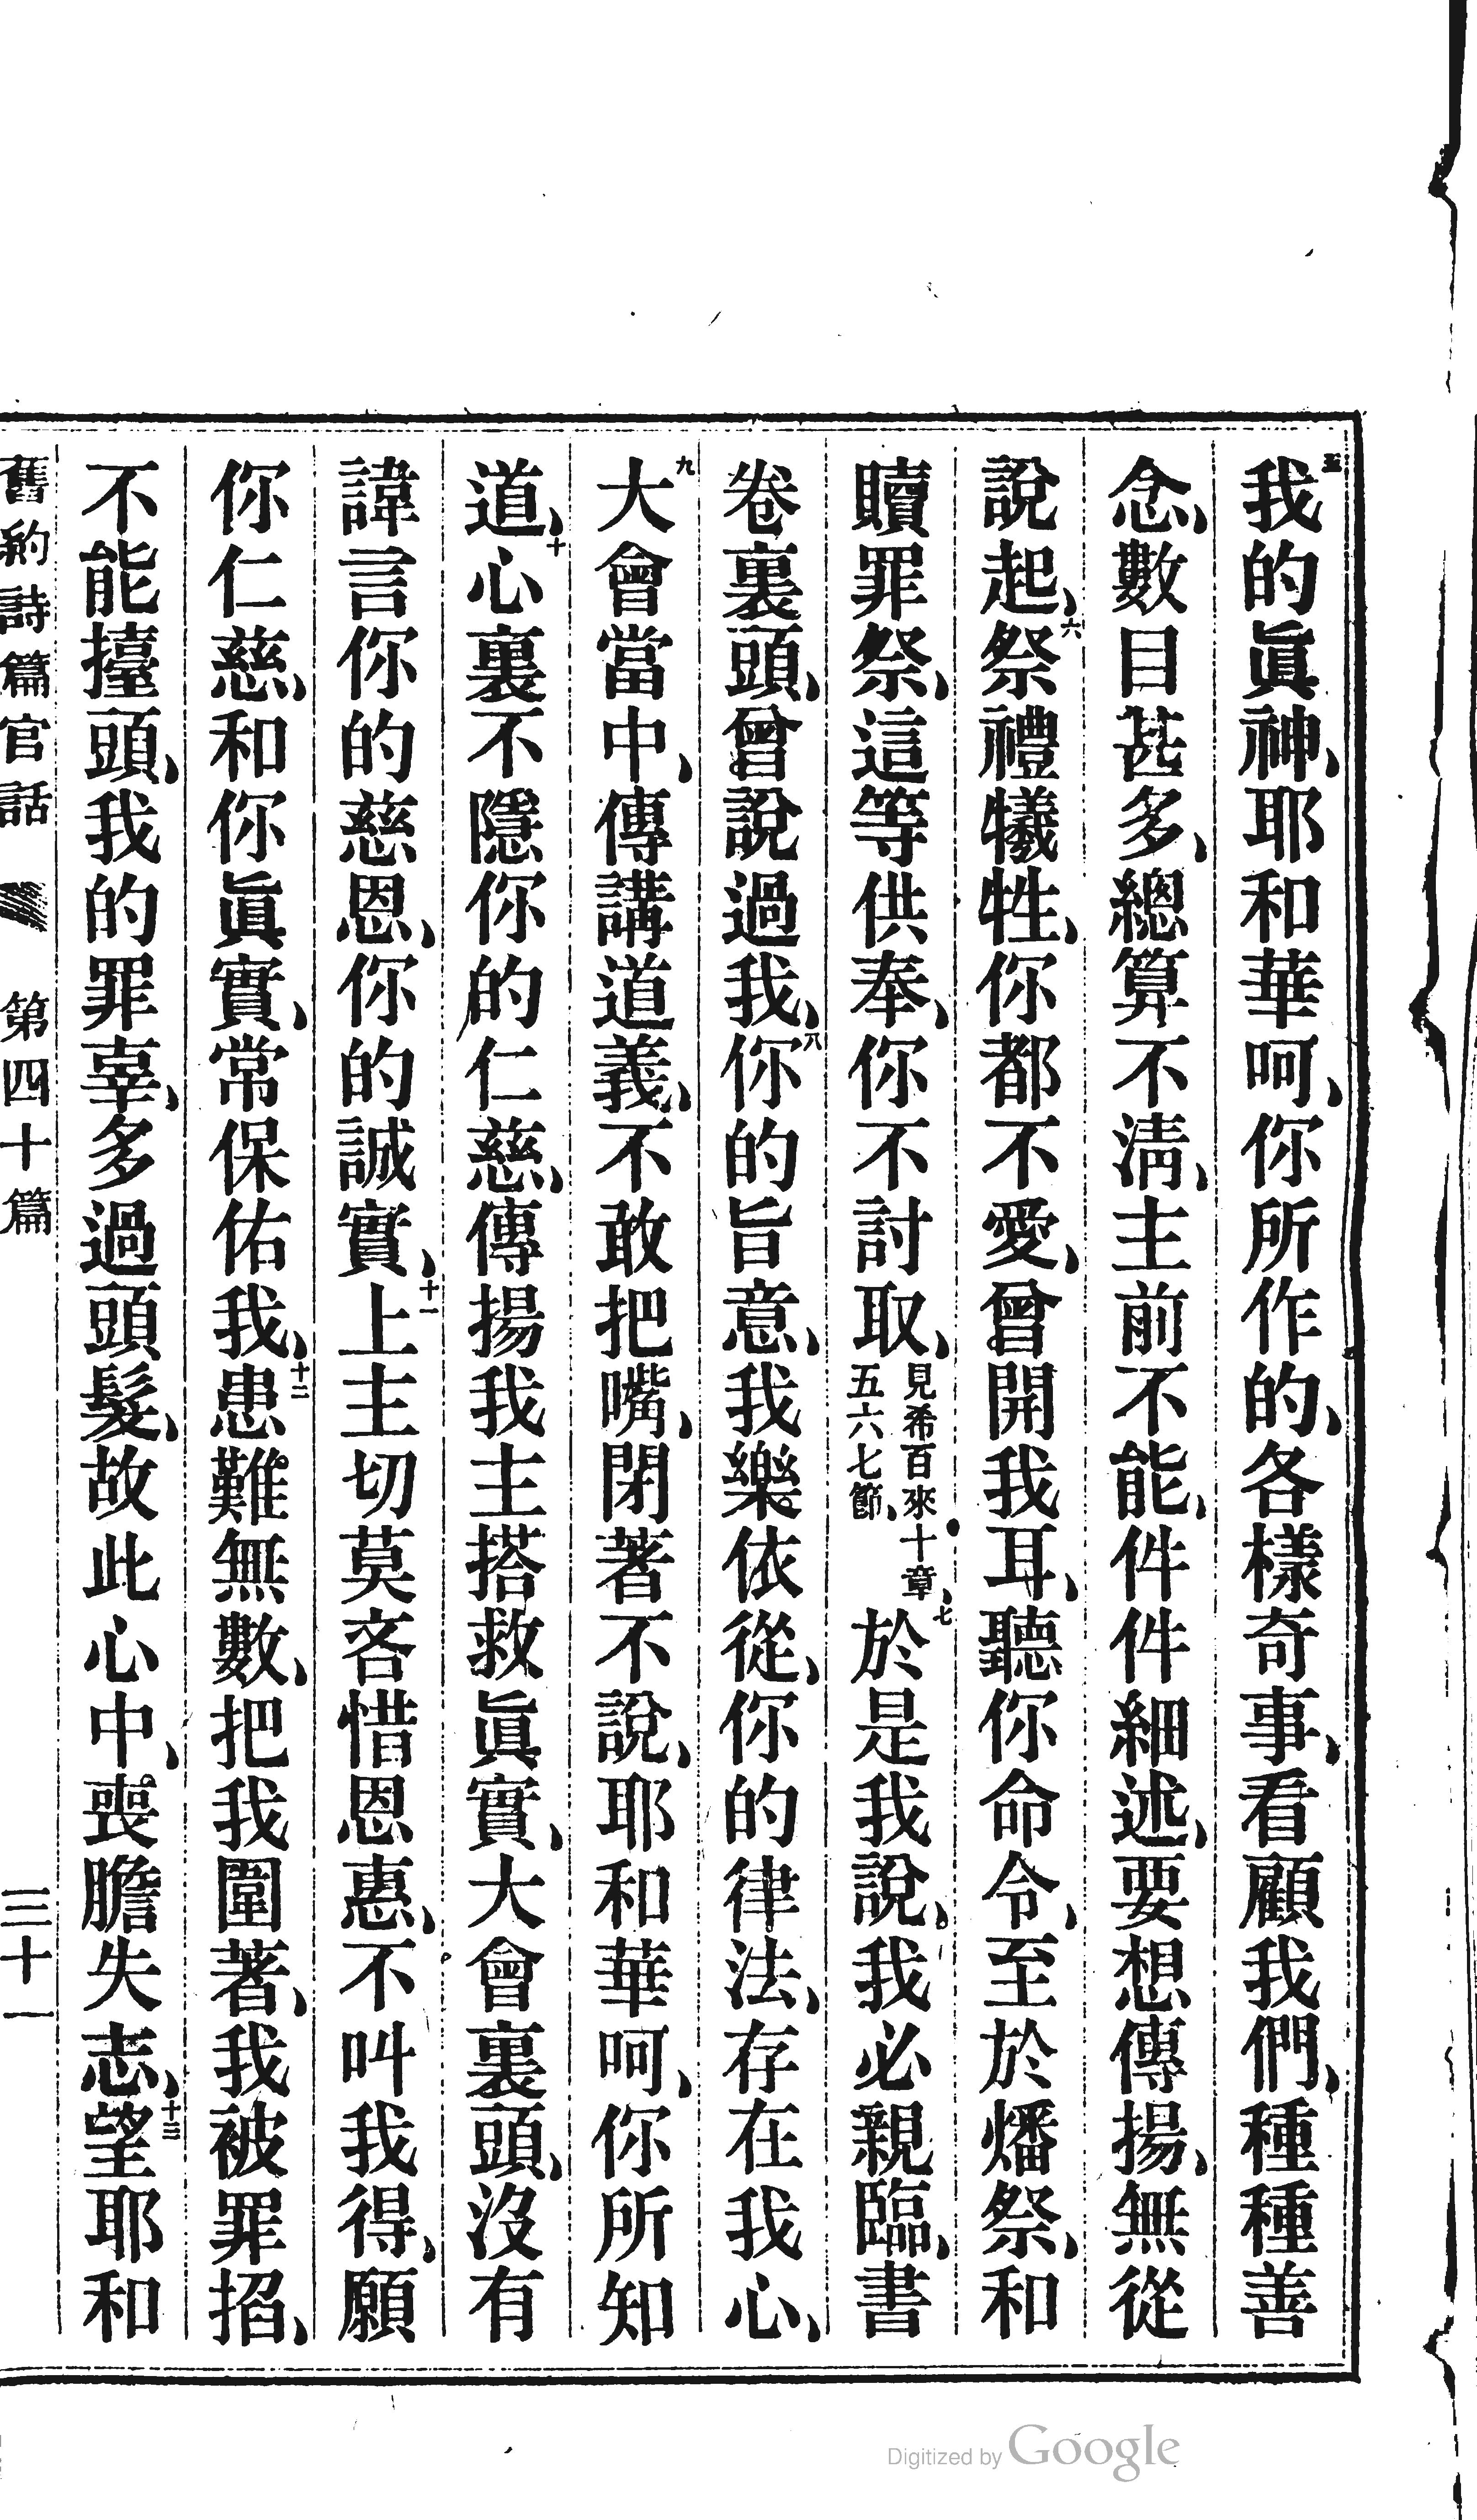 五我的眞神、耶和華呵、你所作的、各樣奇事、看顧我們、種種善
念、數目甚多、總算不淸、主前不能、件件細述、要想傳揚、無從
說起、六祭禮犧牲、你都不愛、曾開我耳、聽你命令、至於燔祭、和
贖罪祭、這等供奉、你不討取、見希百來十章、五六七節、七於是我說、我必親臨、書
卷裏頭、曾說過我、八你的旨意、我樂依從、你的律法、存在我心、
九大會當中、傳講道義、不敢把嘴、閉著不說、耶和華呵、你所知
道、十心裏不隱你的仁慈、傳揚我主搭救眞實、大會裏頭、沒有
諱言你的慈恩、你的誠實、十一上主切莫吝惜恩惠、不叫我得、願
你仁慈、和你眞實、常保佑我、十二患難無數、把我圍著、我被罪招、
不能擡頭、我的罪辜、多過頭髮、故此心中、喪膽失志、十三望耶和
舊約詩篇官話 第四十篇 三十一
Digitized by Google